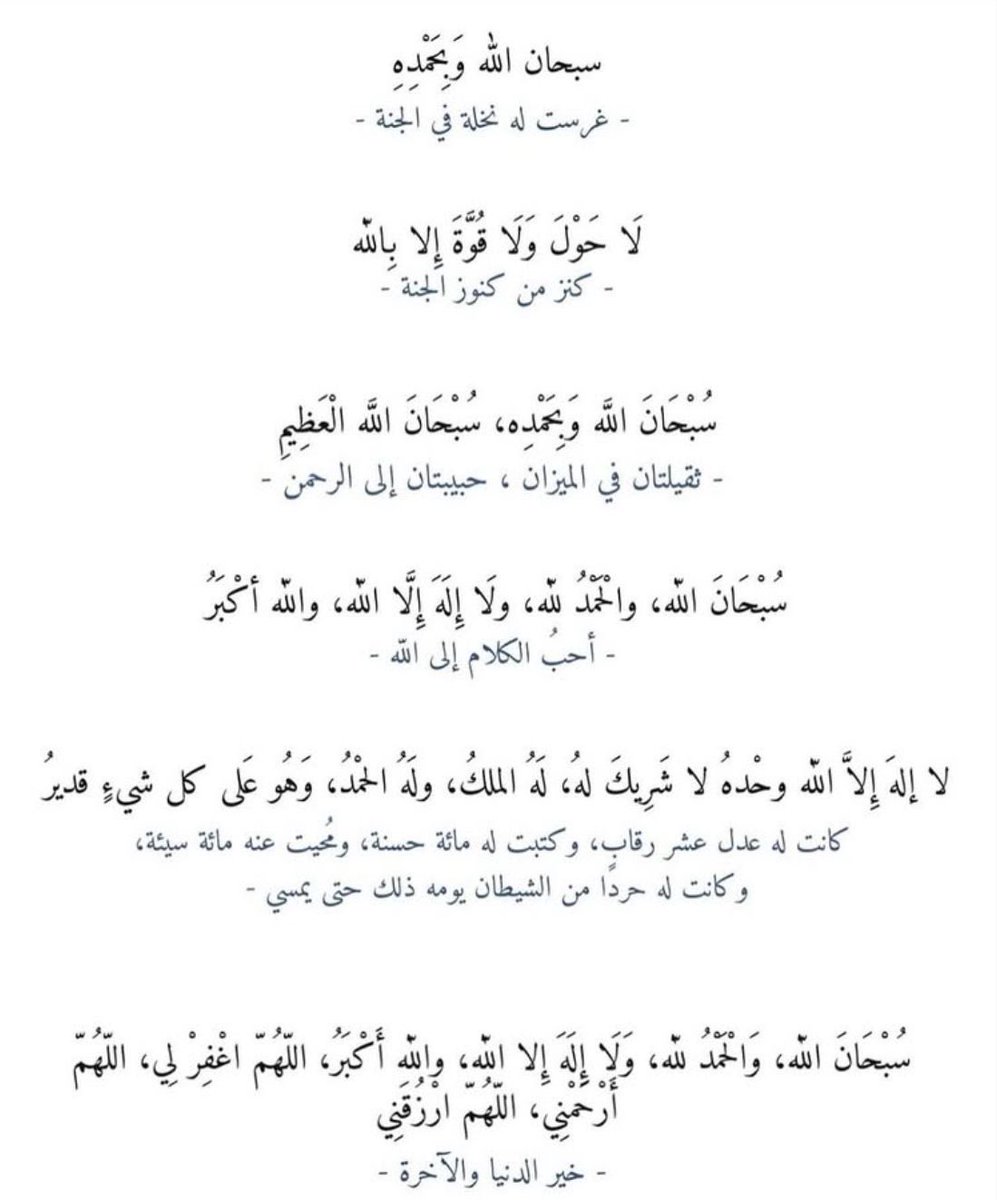 سبحان الله وَبِحَمْدِهِ
- غرست له نخلة في الجنة -
لَا حَوْلَ وَلَا قُوَّةَ إِلا بِالله
- كنز من كنوز الجنة -
سُبْحَانَ اللَّه وَبِحَمْدِه، سُبْحَانَ اللَّه الْعَظِيمِ
- ثقيلتان في الميزان ، حبيبتان إلى الرحمن -
سُبْحَانَ الله، والْحَمْدُ لله، ولَا إِلَهَ إِلَّا الله، والله أكْبَرُ
- أحبُ الكلام إلى الله -
لا إلهَ إِلاَّ الله وحْدهُ لا شَرِيكَ لهُ، لَهُ الملكُ، ولَهُ الحمْدُ، وَهُو عَلى كل شيءٍ قديرُ
كانت له عدل عشر رقابٍ، وكتبت له مائة حسنة، ومُحيت عنه مائة سيئة،
وكانت له حردًا من الشيطان يومه ذلك حتى يمسي -
سُبْحَانَ الله، وَالْحَمْدُ لله، وَلَا إِلَهَ إِلا الله، والله أَكْبَرُ، اللّهُمّ اغْفِرْ لِي، اللّهُمّ
أَرْحَمْنِي، اللّهُمّ ارْزُقَنِي
- خير الدنيا والآخرة -